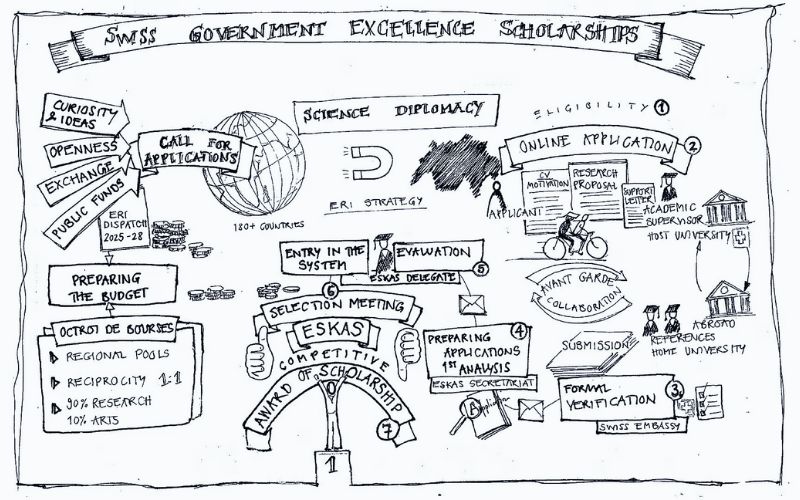 SWISS GOVERNMENT EXCELLENCE SCHOLARSHIPS
CURIOSITY
& IDEAS
OPENNESS
EXCHANGE
PUBLIC FUNDS
CALL FOR
APPLICATIONS
ERI
DISPATCH
2025-28
180+ COUNTRIES
SCIENCE DIPLOMACY
ERI STRATEGY
ELIGIBILITY 1
ONLINE APPLICATION 2
CV
MOTIVATION
RESEARCH
PROPOSAL
SUPPORT
LETTER
APPLICANT
ACADEMIC
SUPERVISOR
HOST UNIVERSITY
AVANT GARDE
COLLABORATION
ABROAD
REFERENCES
HOME UNIVERSITY
SUBMISSION
FORMAL
VERIFICATION
3
SWISS EMBASSY
4
PREPARING
APPLICATIONS
1ST ANALYSIS
ESKAS SECRETARIAT
Application
EVALUATION
5
ESKAS DELEGATE
ENTRY IN THE
SYSTEM
6
SELECTION MEETING
ESKAS
COMPETITIVE
AWARD OF SCHOLARSHIP
7
1
PREPARING
THE BUDGET
OCTROI DE BOURSES
REGIONAL POOLS
RECIPROCITY 1:1
90% RESEARCH
10% ARTS